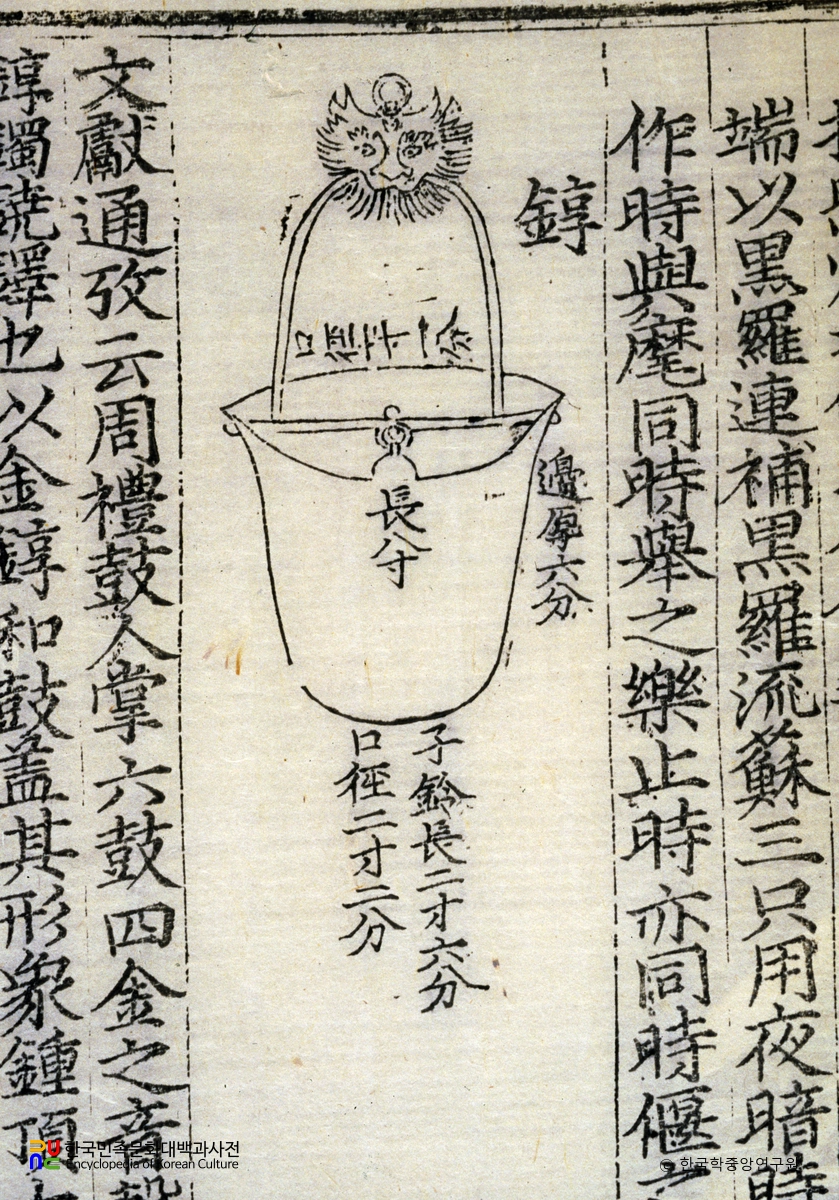 端以黑羅連補黑羅流蘇三只用夜暗時
作時與麾同時舉之樂止時亦同時偃
錞
口徑七寸一分
邊厚六分
長八寸
子鈴長二寸六分
口徑二寸二分
文獻通攷云周禮鼓人掌六鼓四金之音聲
錞鐲鐃鐸也以金錞和鼓盖其形象鍾頂
한국민족문화대백과사전
Encyclopedia of Korean Culture
© 한국학중앙연구원